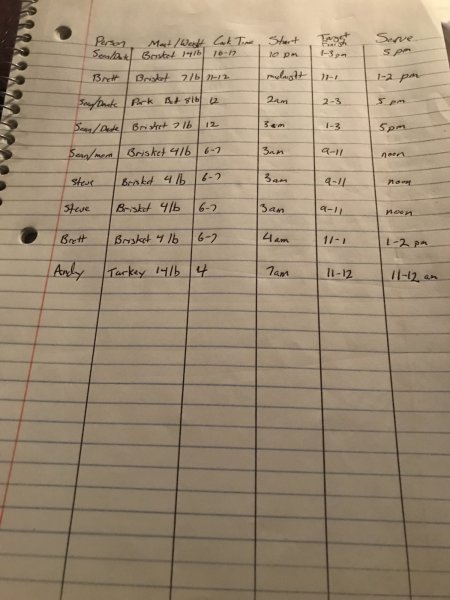 Person Meat/Weight Cook Time Start Target Finish Serve
Sean/Dade Brisket 14lb 16-17 10 pm 1-3 pm 5 pm
Brett Brisket 7lb 11-12 midnight 11-1 1-2 pm
Sean/Dade Pork But 8lb 12 2am 2-3 5 pm
Sean/Dade Brisket 7lb 12 3am 1-3 5pm
Sean/mom Brisket 4lb 6-7 3am 9-11 noon
Steve Brisket 4lb 6-7 3am 9-11 noon
Steve Brisket 4lb 6-7 3am 9-11 noon
Brett Brisket 4lb 6-7 4am 11-1 1-2 pm
Andy Turkey 14lb 4 7am 11-12 11-12 am